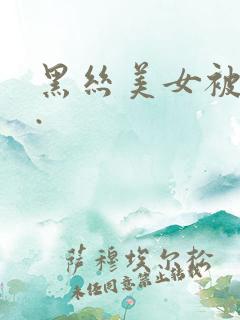 黑丝美女被
.
萨穆埃尔松
未经同意禁止转载